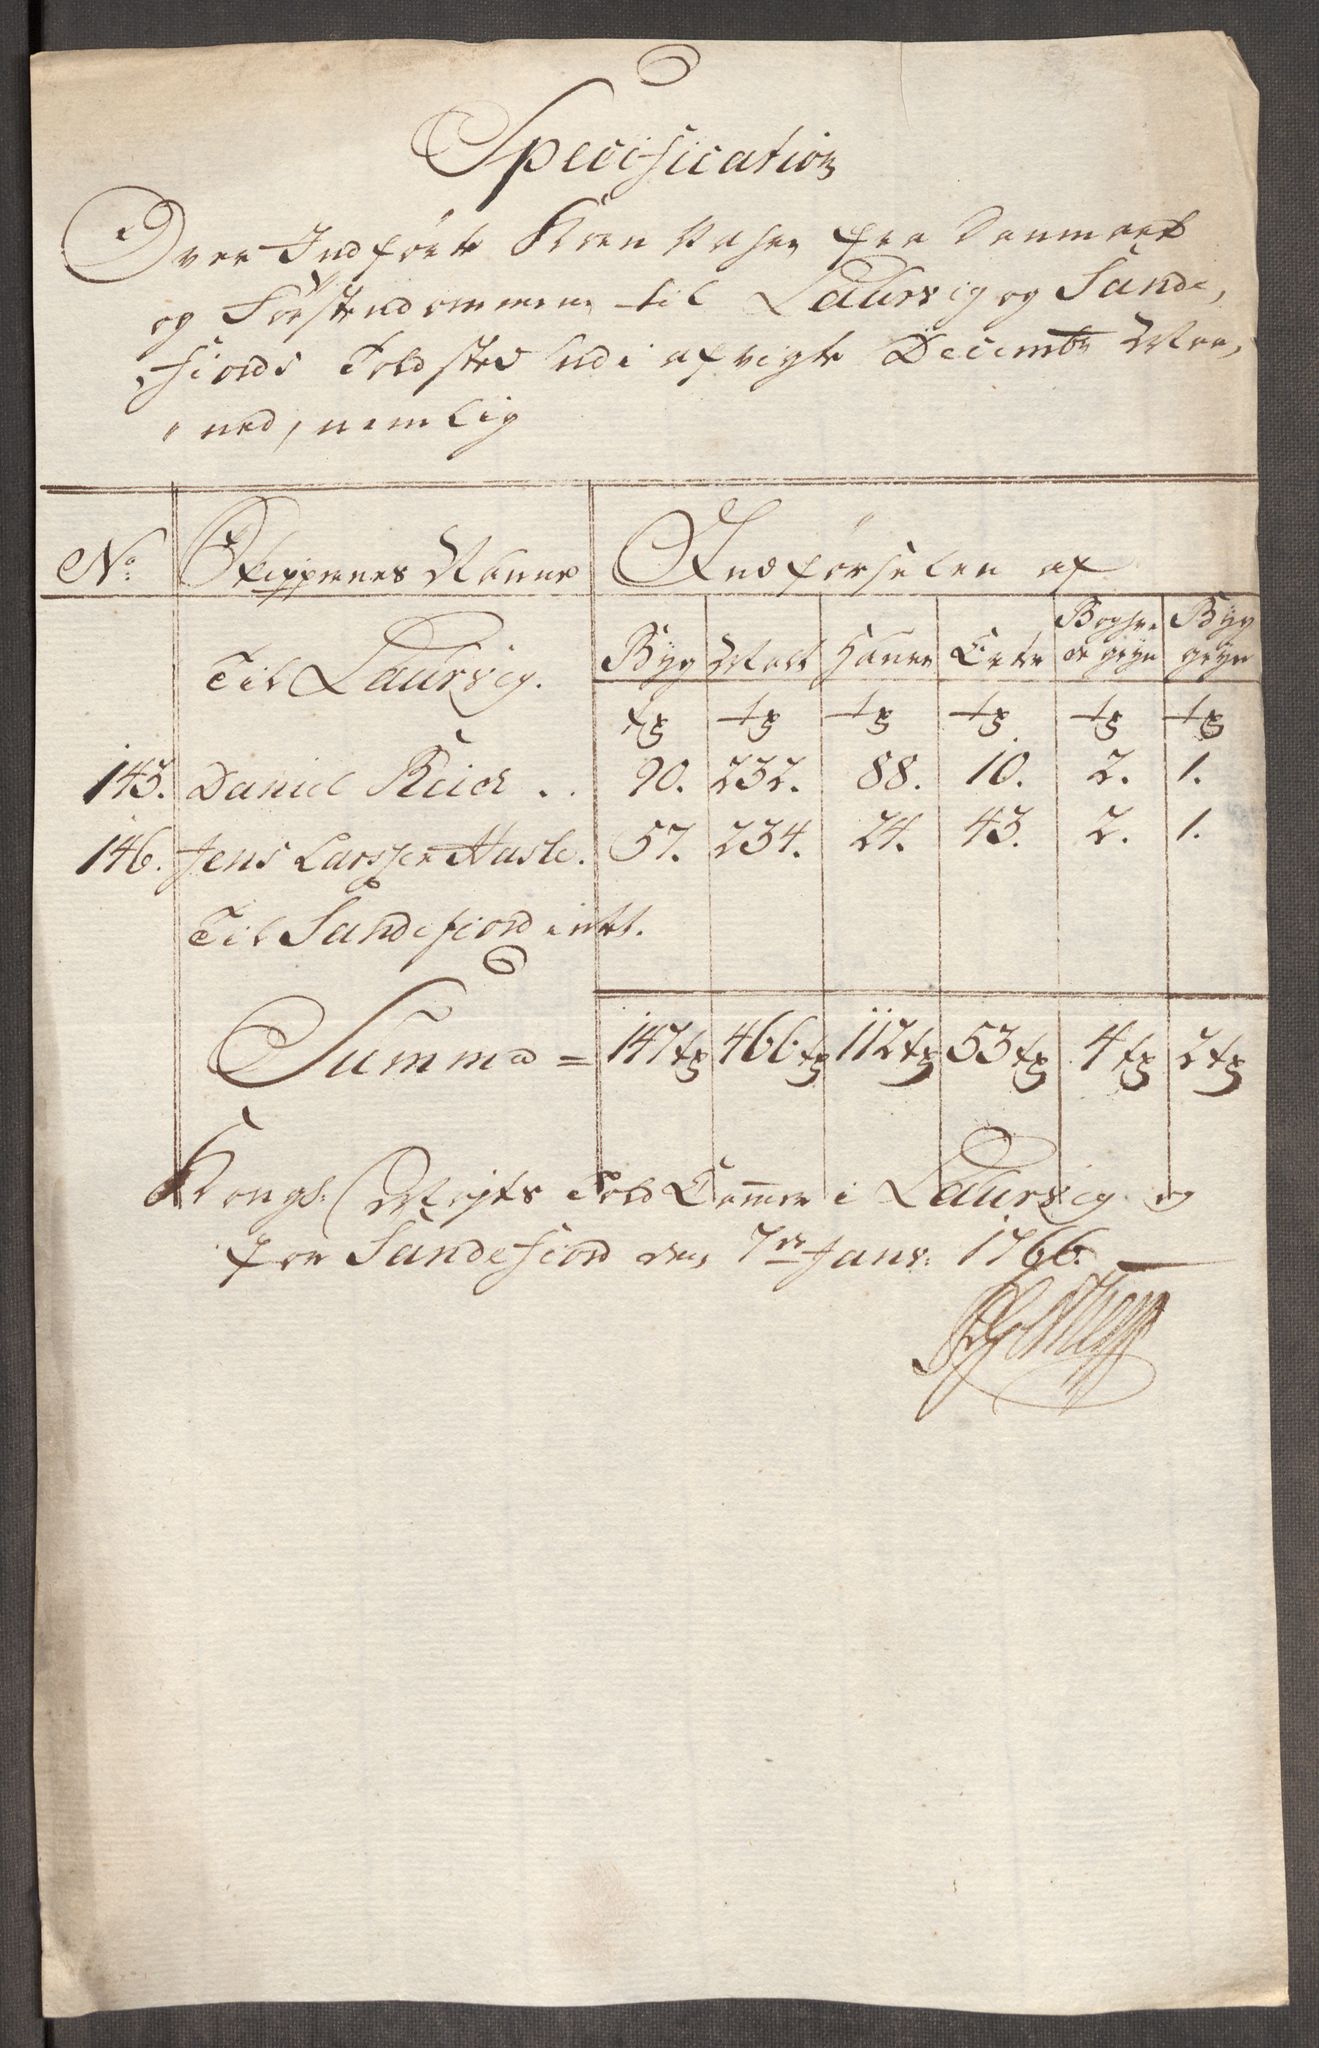 Specification
Over Indförte Korn Vahre fra Danmark
og Förstendommene til Laurvig og Sande,
fiords Told sted udi afvigte Decembr Maa,
ned, nemlig
No: Skippernes Nafne Indförselen af
Til Laurvig. Byg Malt Hafre Erter Boghve Byg
de gryn gryn
tr tr tr tr tr tr
143. Daniel Reick . . 90. 232. 88. 10. 2. 1.
146. Jens Larssen Husle. 57. 234. 24. 43. 2. 1.
Til Sandefiord intet.
Summa = 147 tr 466 tr 112 tr 53 tr 4 tr 2 tr
Kongl: Mayts Told Cammer i Laurvig og
for Sandefiord den 7de Janv: 1766.